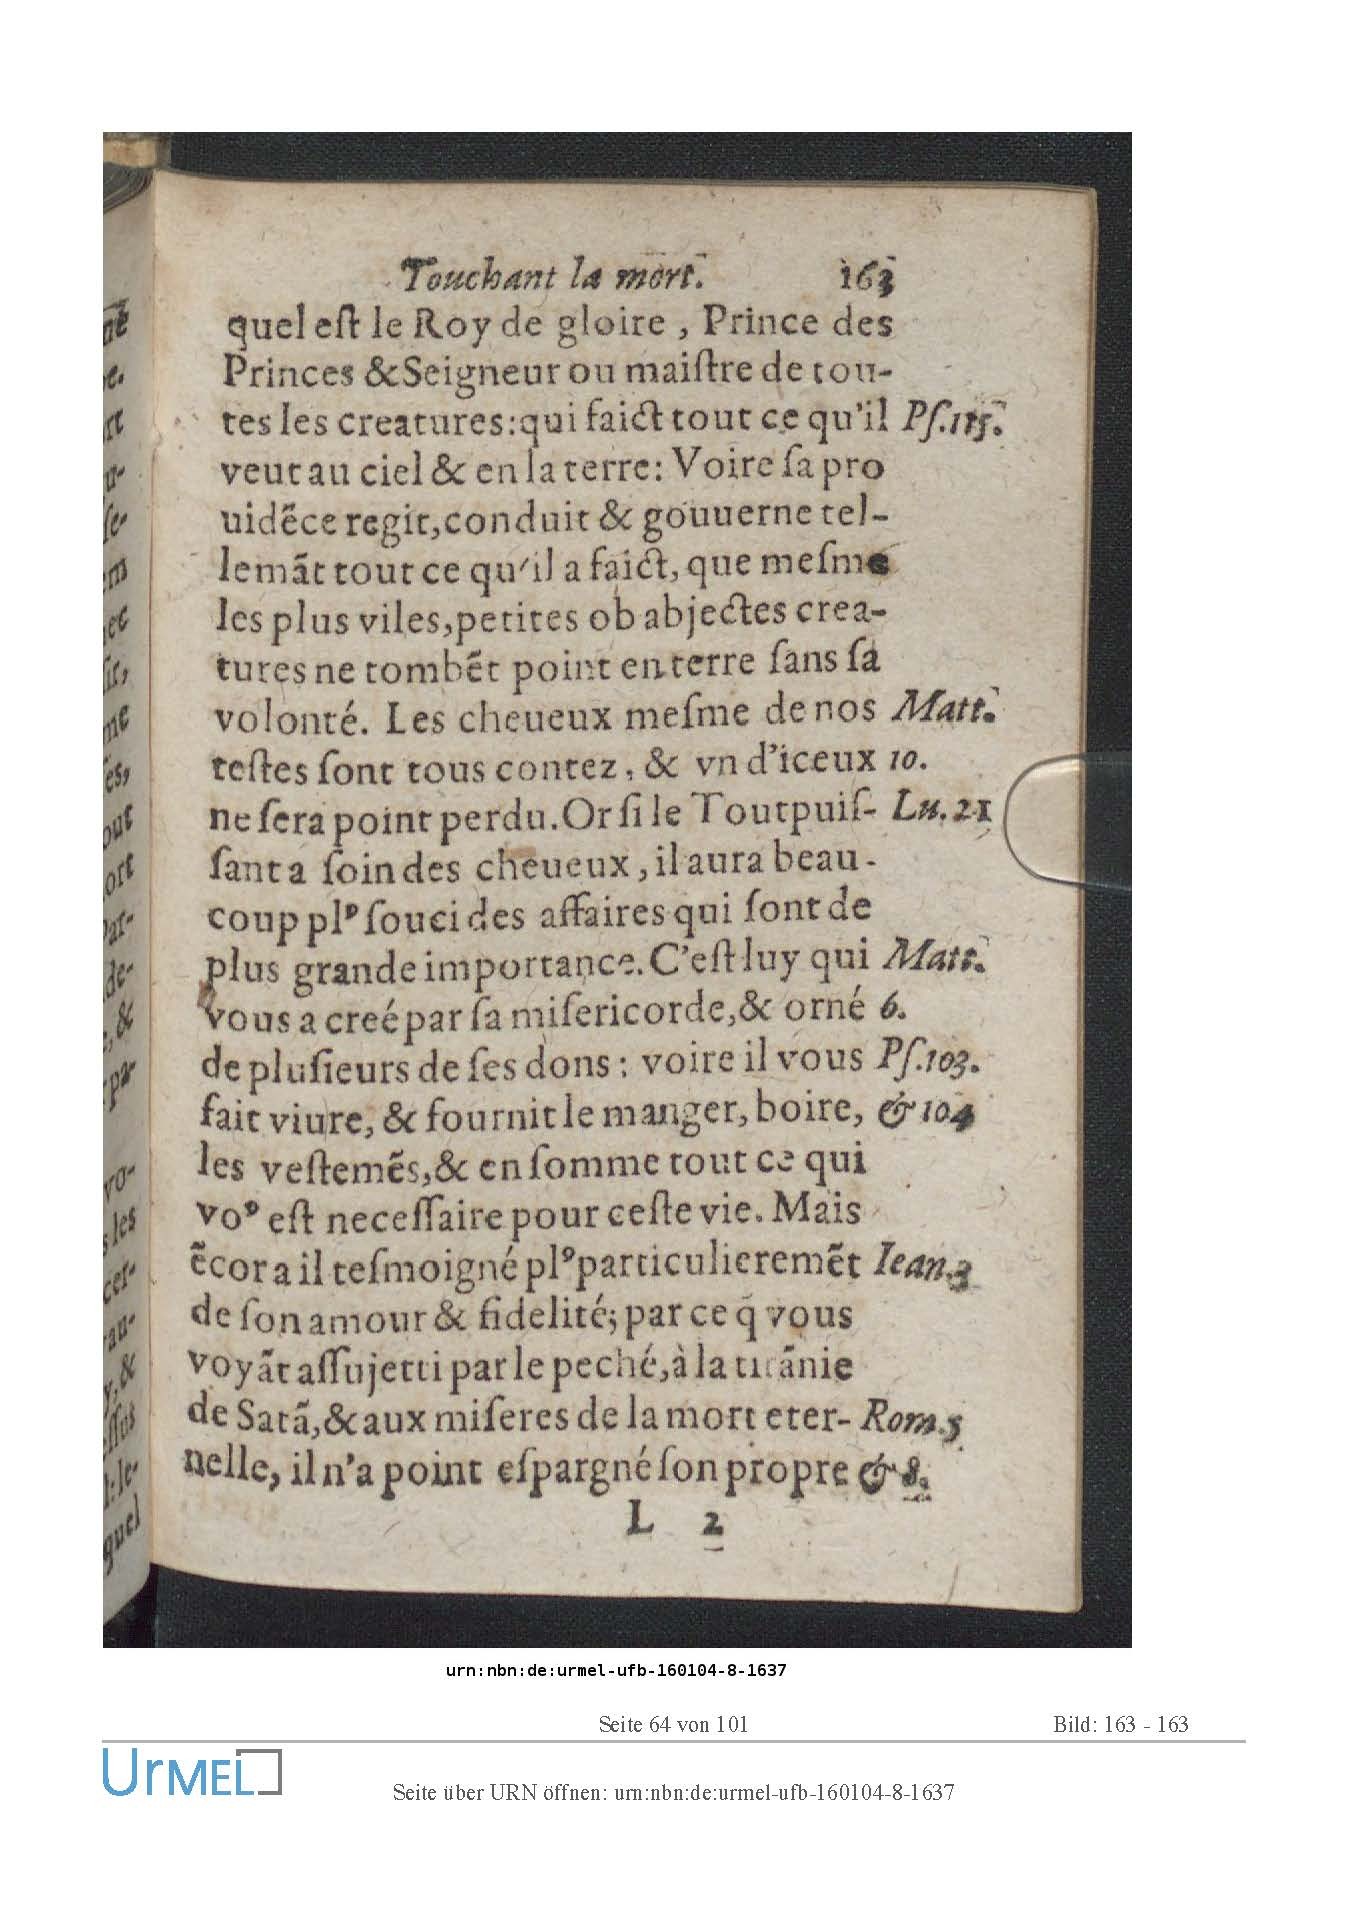 Touchant la mort. 163
quel eſt le Roy de gloire, Prince des
Princes & Seigneur ou maiſtre de tou-
tes les creatures: qui faict tout ce qu'il Pſ.115.
veut au ciel & en la terre: Voire ſa pro
uidēce regit, conduit & gouuerne tel-
lemāt tout ce qu'il a faict, que meſme
les plus viles, petites ob abjectes crea-
tures ne tombēt point en terre ſans ſa
volonté. Les cheueux meſme de nos Matt.
teſtes ſont tous contez, & vn d'iceux 10.
ne ſera point perdu. Or ſi le Toutpuiſ- Lu. 21
ſant a ſoin des cheueux, il aura beau-
coup plꝰ ſouci des affaires qui ſont de
plus grande importance. C'eſt luy qui Matt.
vous a creé par ſa miſericorde, & orné 6.
de pluſieurs de ſes dons: voire il vous Pſ.103.
fait viure, & fournit le manger, boire, & 104
les veſtemēs, & en ſomme tout ce qui
voꝰ eſt neceſſaire pour ceſte vie. Mais
ēcor a il teſmoigné plꝰ particulieremēt Iean.3
de ſon amour & fidelité; par ce q̄ vous
voyāt aſſujetti par le peché, à la tirānie
de Satā, & aux miſeres de la mort eter- Rom.5
nelle, il n'a point eſpargné ſon propre & 8.
L 2
urn:nbn:de:urmel-ufb-160104-8-1637
Seite 64 von 101 Bild: 163 - 163
UrMEL
Seite über URN öffnen: urn:nbn:de:urmel-ufb-160104-8-1637